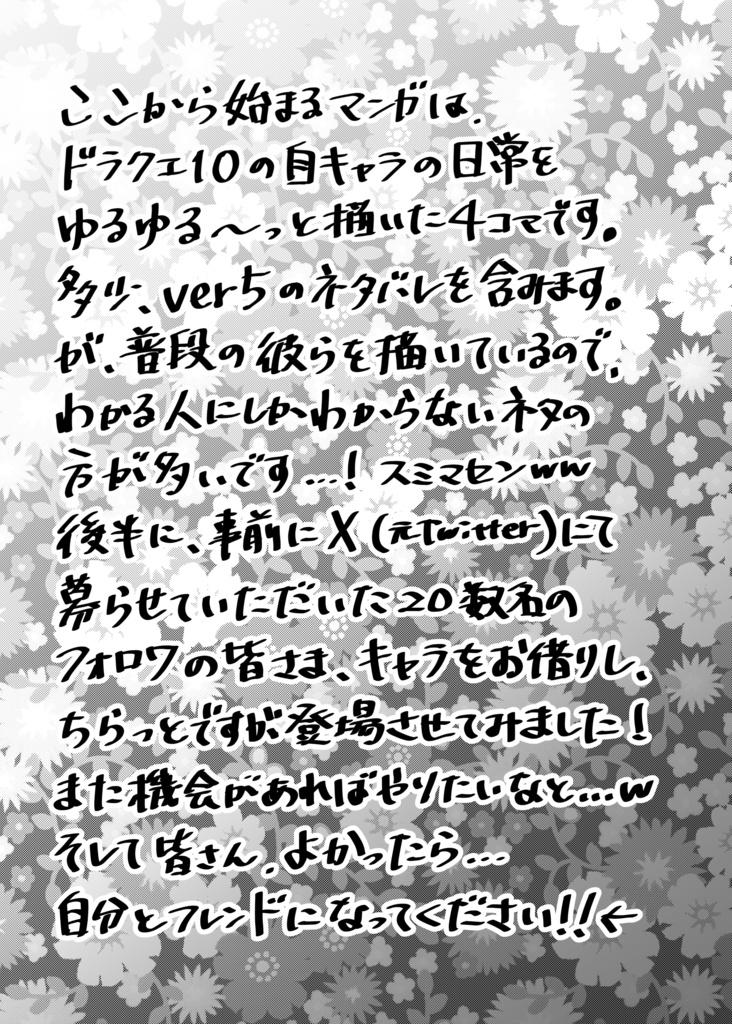 ここから始まるマンガは、
ドラクエ10の自キャラの日常を
ゆるゆる～っと描いた4コマです。
多少、ver5のネタバレを含みます。
が、普段の彼らを描いているので、
わかる人にしかわからないネタの
方が多いです…！スミマセンww
後半に、事前にX(元Twitter)にて
募らせていただいた20数名の
フォロワの皆さま、キャラをお借りし、
ちらっとですが、登場させてみました！
また機会があればやりたいなと…w
そして皆さん、よかったら…
自分とフレンドになってください!!←